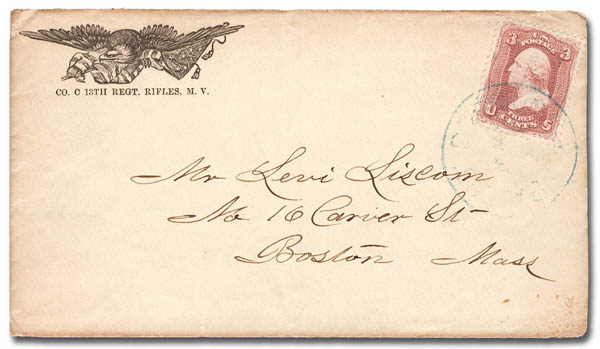 CO. C 13TH REGT. RIFLES, M. V.
3 U.S. 3
POSTAGE
U THREE S
CENTS
Mr Levi Liscom
No 16 Carver St
Boston Mass